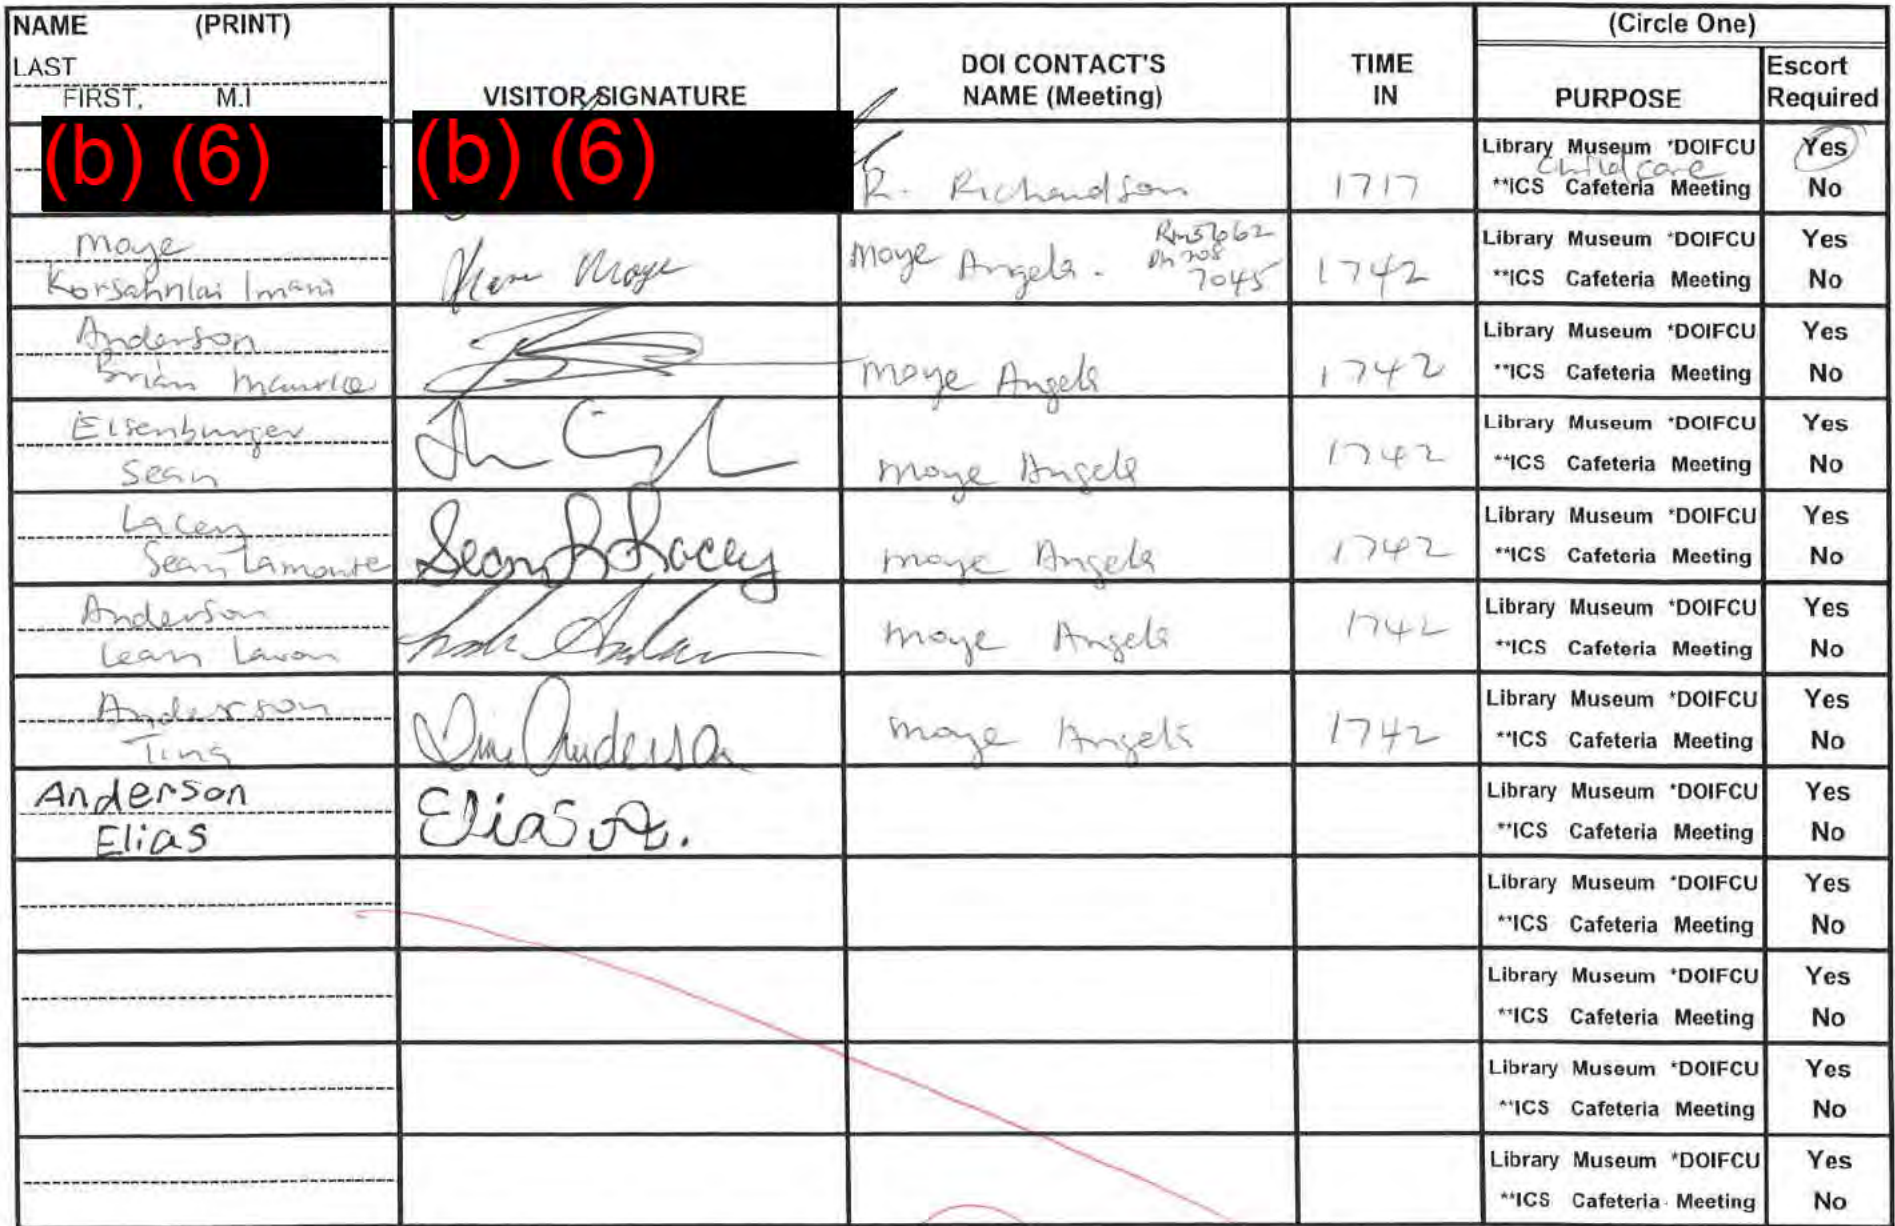 NAME (PRINT)
LAST
FIRST, M.I
VISITOR SIGNATURE
DOI CONTACT'S
NAME (Meeting)
TIME
IN
(Circle One)
PURPOSE
Escort
Required
(b) (6)
(b) (6)
R. Richardson
1717
Library Museum *DOIFCU
Childcare
**ICS Cafeteria Meeting
Yes
No
Moye
Imani
Moye
Moye Angela.
7045
1742
Library Museum *DOIFCU
**ICS Cafeteria Meeting
Yes
No
Anderson
Brian Maurice
Moye Angela
1742
Library Museum *DOIFCU
**ICS Cafeteria Meeting
Yes
No
Eisenburger
Sean
Moye Angela
1742
Library Museum *DOIFCU
**ICS Cafeteria Meeting
Yes
No
Lacey
Sean Lamonte
Sean L Lacey
Moye Angela
1742
Library Museum *DOIFCU
**ICS Cafeteria Meeting
Yes
No
Anderson
Moye Angela
1742
Library Museum *DOIFCU
**ICS Cafeteria Meeting
Yes
No
Anderson
Ting
Anderson
Moye Angela
1742
Library Museum *DOIFCU
**ICS Cafeteria Meeting
Yes
No
Anderson
Elias
Elias A.
Library Museum *DOIFCU
**ICS Cafeteria Meeting
Yes
No
Library Museum *DOIFCU
**ICS Cafeteria Meeting
Yes
No
Library Museum *DOIFCU
**ICS Cafeteria Meeting
Yes
No
Library Museum *DOIFCU
**ICS Cafeteria Meeting
Yes
No
Library Museum *DOIFCU
**ICS Cafeteria Meeting
Yes
No